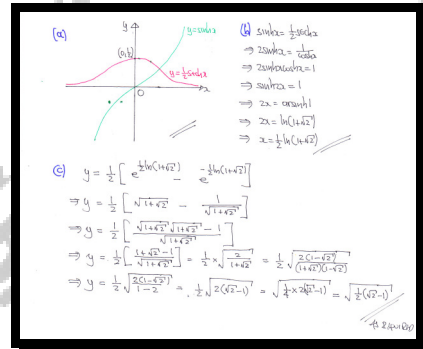 (a)
y
y=sinhx
(0,½)
y=½sechx
O
x
(b) sinhx = ½sechx
⇒ 2sinhx = 1/coshx
⇒ 2sinhxcoshx = 1
⇒ sinh2x = 1
⇒ 2x = arsinh1
⇒ 2x = ln(1+√2)
⇒ x = ½ln(1+√2)
(c) y = ½[e^(½ln(1+√2)) - e^(-½ln(1+√2))]
⇒ y = ½[√(1+√2) - 1/√(1+√2)]
⇒ y = ½[(√(1+√2)√(1+√2) - 1)/√(1+√2)]
⇒ y = ½[(1+√2-1)/√(1+√2)] = ½ × √(2/(1+√2)) = ½√(2(1-√2)/((1+√2)(1-√2)))
⇒ y = ½√(2(1-√2)/(1-2)) = ½√(2(√2-1)) = √(¼×2(√2-1)) = √(½(√2-1))